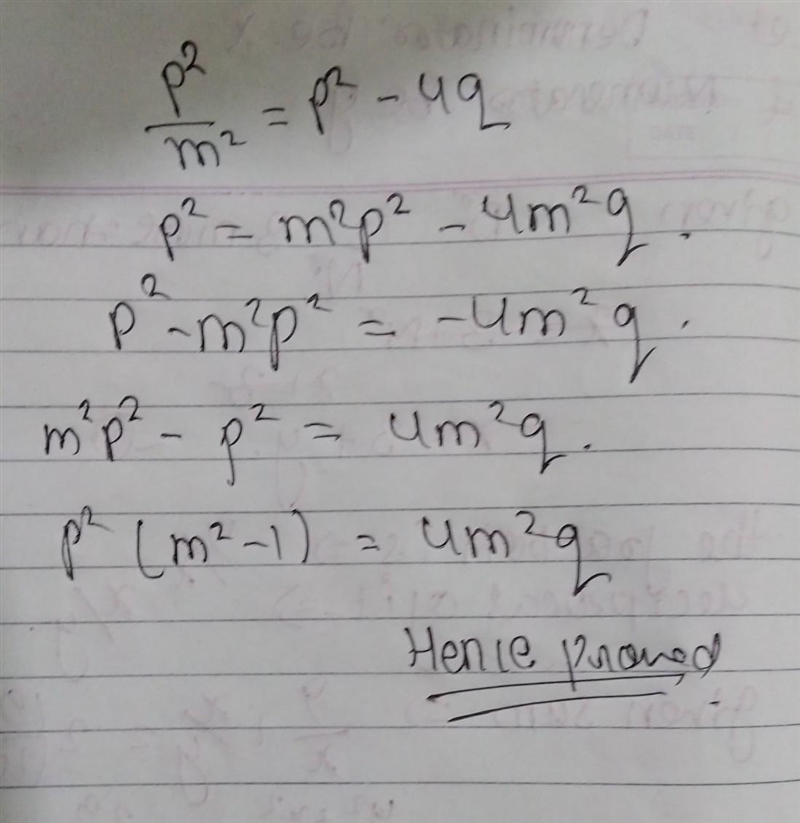 p²/m² = p² - 4q
p² = m²p² - 4m²q.
p² - m²p² = -4m²q.
m²p² - p² = 4m²q.
p² (m² - 1) = 4m²q
Hence proved